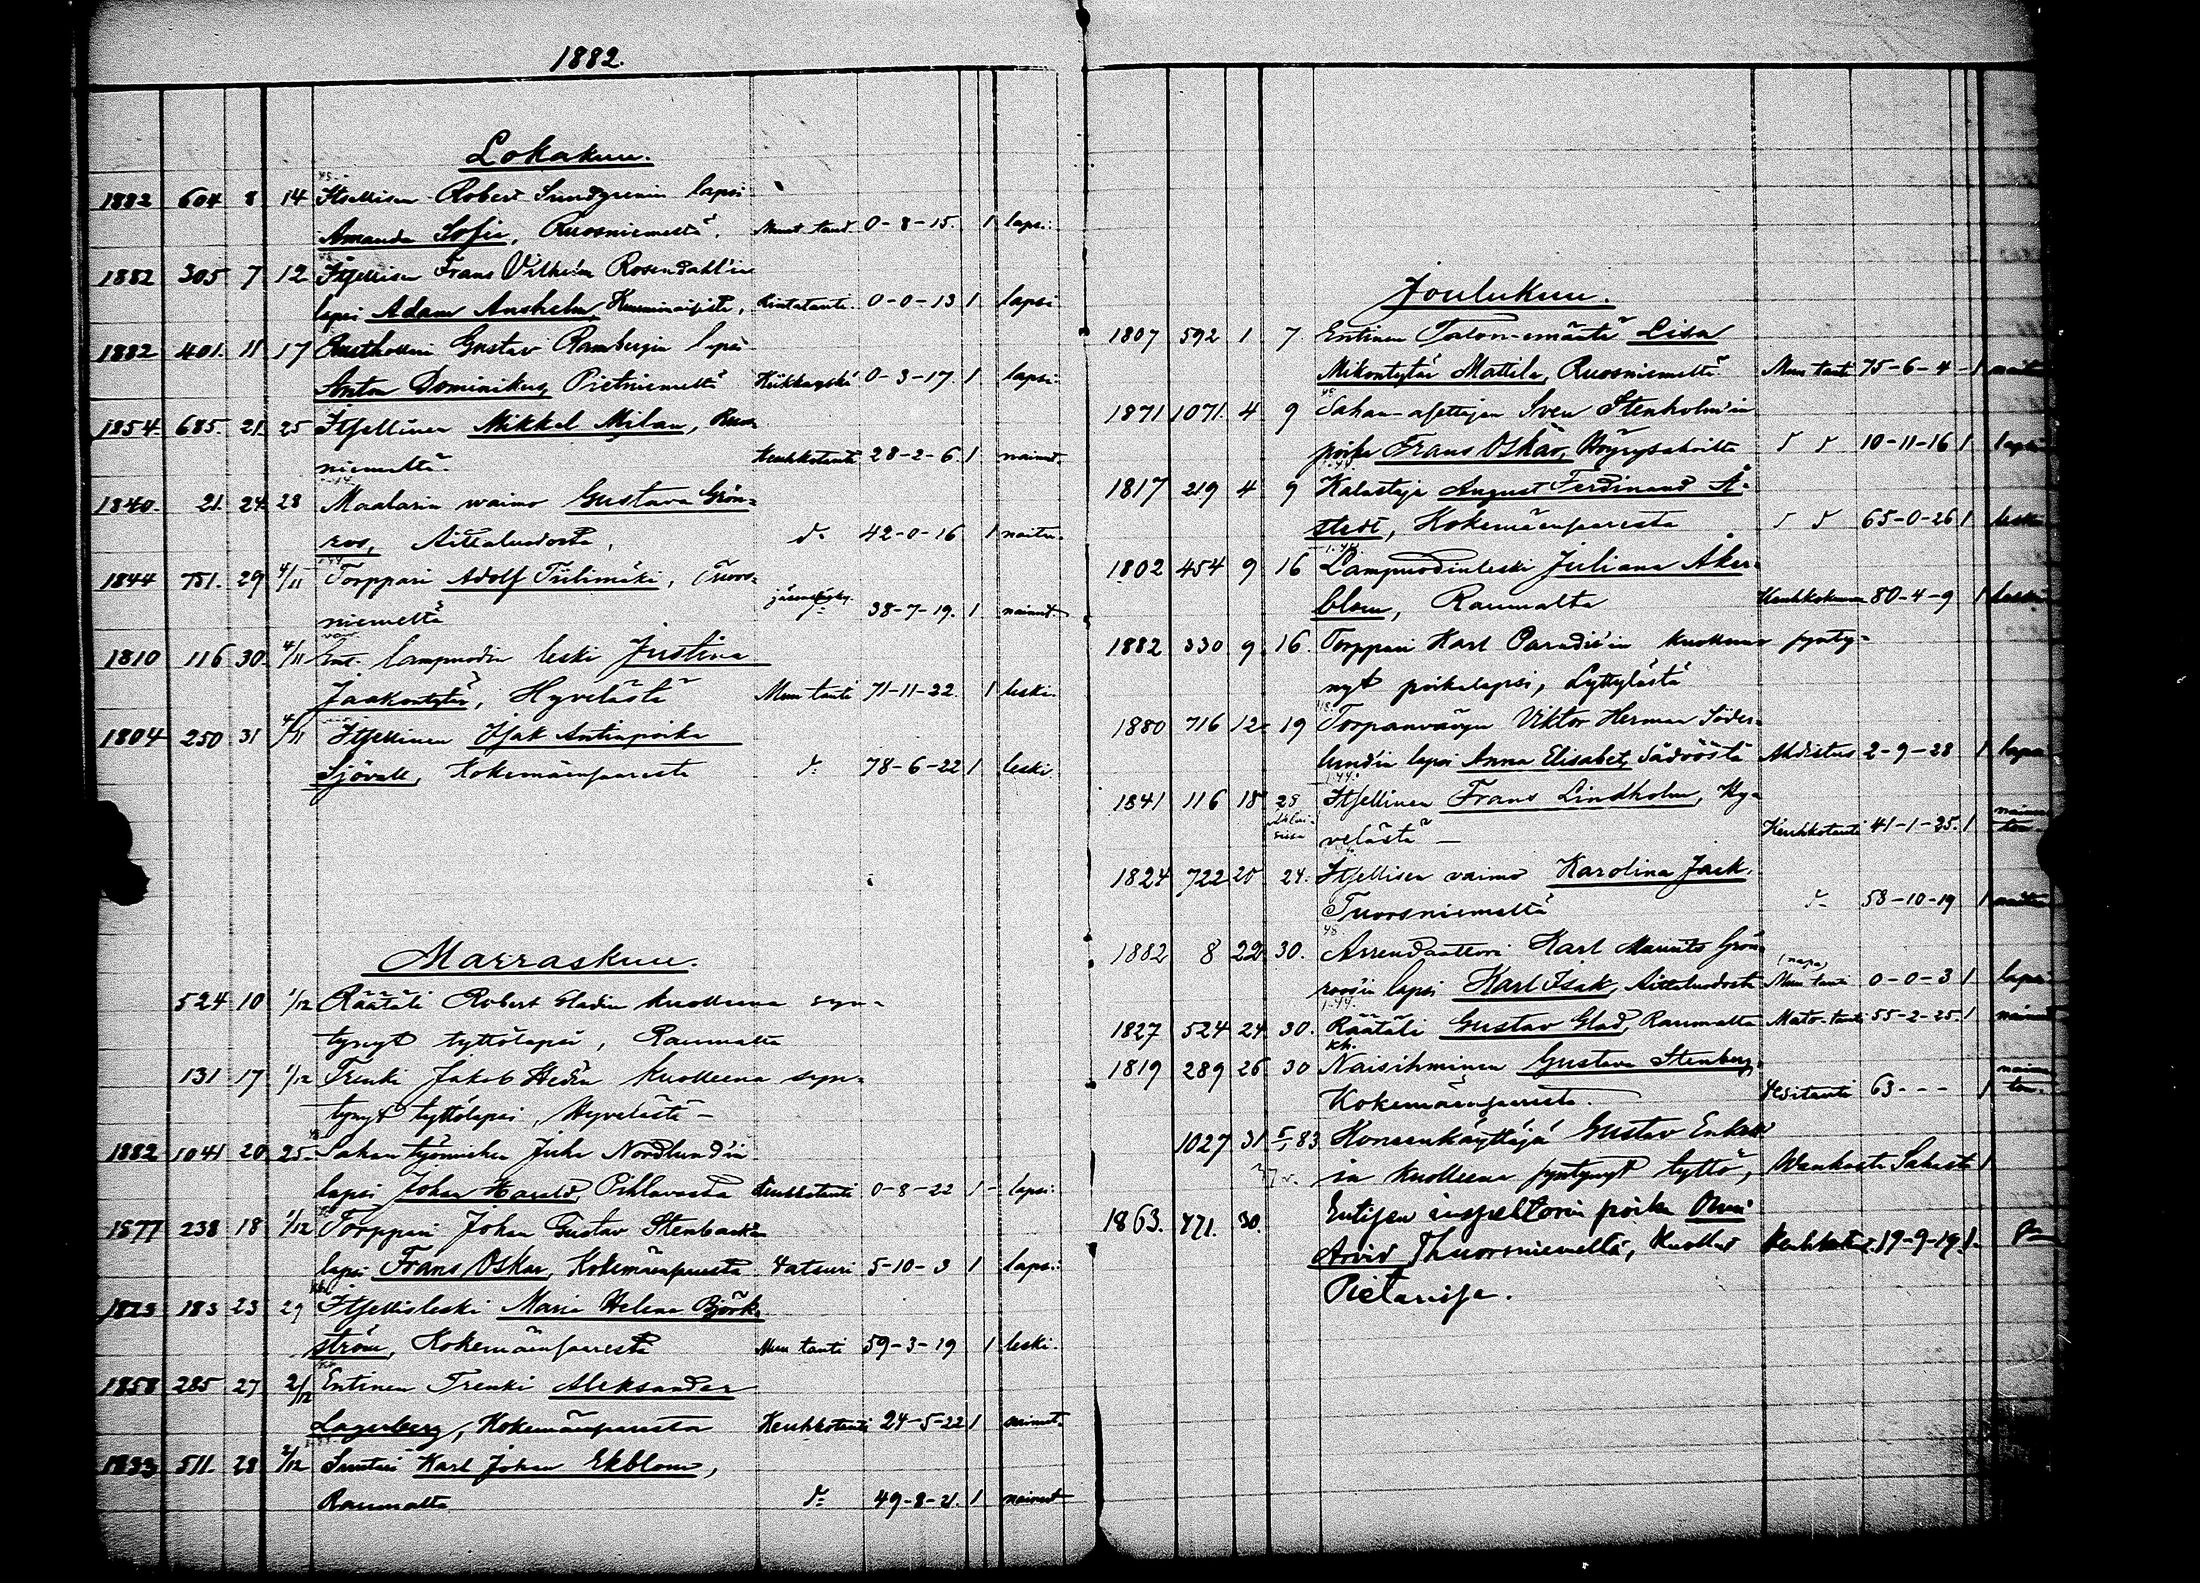 1882.
Lokakuu.
1882 604 8 14 Itsellisen Robert Sundgrenin lapsi
Amanda Sofie, Ruosniemeltä. Muu taud 0-8-15. 1 lapsi.
1882 305 7 12 Itsellisen Frans Vilhelm Rosendahl'in
lapsi Adam Anshelm, Kumminaisista, Rintatauti 0-0-13 1 lapsi
1882 401. 11 17 Rusthollin Gustav Rambergin lapsi
Anton Dominikus, Pietniemeltä Hinkuyskä 0-3-17 1 lapsi.
1854. 685. 21. 25 Itsellinen Mikkel Milan, Ruos
niemeltä. Keuhkotauti 28-2-6 1 nainut.
1840. 21. 24. 28 Maalarin waimo Gustava Grön=
ros, Aittaluodosta, d:o 42-0-16 1 naitu.
1844 751. 29 4/11 Torppari Adolf Tiilimäki, Tuors=
niemeltä 38-7-19. 1 nainut.
1810 116 30. 4/11 Ent. lampuodin leski Justina
Jaakontytär, Hyvelästä Muu tauti 71-11-22. 1 leski.
1804 250 31 4/11 Itsellinen Isak Antinpoika
Sjövall, Kokemäensaaresta d:o 78-6-22 1 leski.
Marraskuu.
524 10 1/12 Räätäli Robert Gladin kuolleena syn=
tynyt tyttölapsi, Raumalta
131 17 1/12 Trenki Jakob Hedén kuolleena syn=
tynyt tyttölapsi, Hyvelästä -
1882 1041 20 25. Sahan työmiehen Juha Nordlund'in
lapsi Johan Harald, Pihlavasta Keuhkotauti 0-8-22 1 - lapsi.
1877 238 18 1/12 Torppari Johan Gustav Stenbackin
lapsi Frans Oskar, Kokemäensaaresta Vatsuri 5-10-3 1 lapsi.
1823 183 23 29 Itsellisleski Maria Helena Björk=
ström, Kokemäensaaresta Muu tauti 59-3-19 1 leski.
1858 285 27 2/12 Entinen Trenki Aleksander
Lagerberg, Kokemäensaaresta Keuhkotauti 24-5-22 1 nainut.
1833 511. 28 2/12 Suutari Karl Johan Ekblom,
Raumalta d:o 49-8-21. 1 nainut
Joulukuu.
1807 592 1 7. Entinen Talon-emäntä Lisa
Mikontytär Mattila, Ruosniemeltä Muu tauti 75-6-4 - 1
1871 1071. 4 9 Sahan-asettajan Sven Stenholm'in
poika Frans Oskar, Höyrysahoilta d d 10-11-16 1 lapsi
1817 219 4 9 Kalastaja August Ferdinand Å=
stedt, Kokemäensaaresta d d 65-0-26 1 leski
1802 454 9 16 Lampuodinleski Juliana Åker=
blom, Raumalta 80-4-9 1 leski
1882 330 9. 16. Torppari Karl Paradis'in kuolleena synty=
nyt poikalapsi, Lyttylästä
1880 716 12. 19 Torpanvävyn Viktor Herman Söder=
lund'in lapsi Anna Elisabet, Sädöösta Ahdistus 2-9-28 1 lapsi
1841 116 18 25 Itsellinen Frans Lindholm, Hy=
velästä - Keuhkotauti 41-1-25. 1 naima-
ton.
1824 722 20 24. Itsellisen vaimo Karolina Jack.
Tuorsniemeltä d:o 58-10-19 1
1882 8 22. 30. Arrendaattori Karl Maurits Grön=
roos'in lapsi Karl Isak, Aittaluodosta (napa) Muu tauti 0-0-3 1 lapsi
1827 524 24. 30. Räätäli Gustav Glad, Raumalta Mato-tauti 55-2-25. 1 nainut
1819 289 26 30 Naisihminen Gustava Stenberg,
Kokemäensaaresta. Vesitauti 63 - - - 1 naima
ton.
1027 31 5/1 83 Koneenkäyttäjä Gustav Enkell
in kuolleena syntynyt tyttö, 1
1863. 771. 30. Entisen inspehtorin poika
Arvid Thuorsniemeltä, kuollut 19-9-19 1.
Pietarissa.